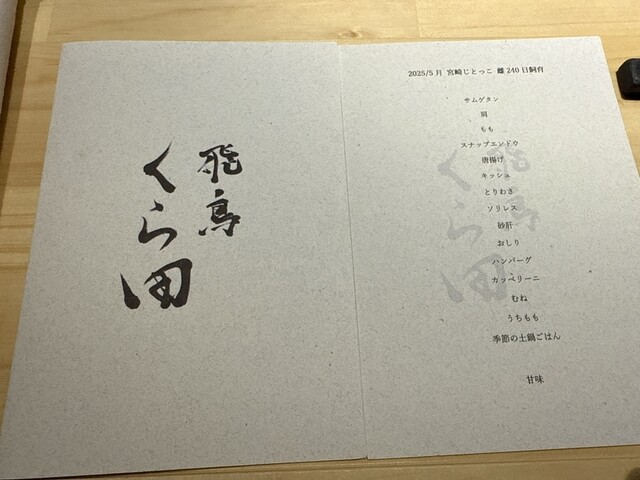 飛鳥
くら田
2025/5月 宮崎じとっこ 雌240日飼育
サムゲタン
肩
もも
スナップエンドウ
唐揚げ
キッシュ
とりわさ
ソリレス
砂肝
おしり
ハンバーグ
カッペリーニ
むね
うちもも
季節の土鍋ごはん
甘味